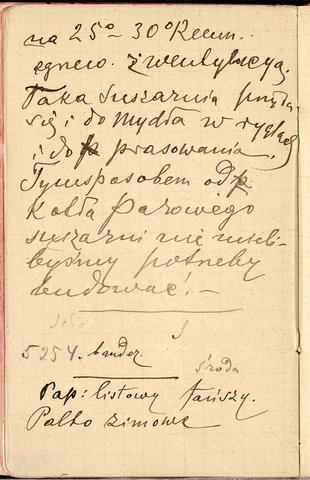 na 25° – 30° Reum.
ogrzew. z wentylacyą.
Taka suszarnia przyda
się i do mydła w ryglach
i do prasowania.
Tym sposobem od p.
Kotła Parowego
suszarni nie mieli-
byśmy potrzeby
budować! –
5254. bander.
środa
Pap: listowy tańszy.
Palto zimowe